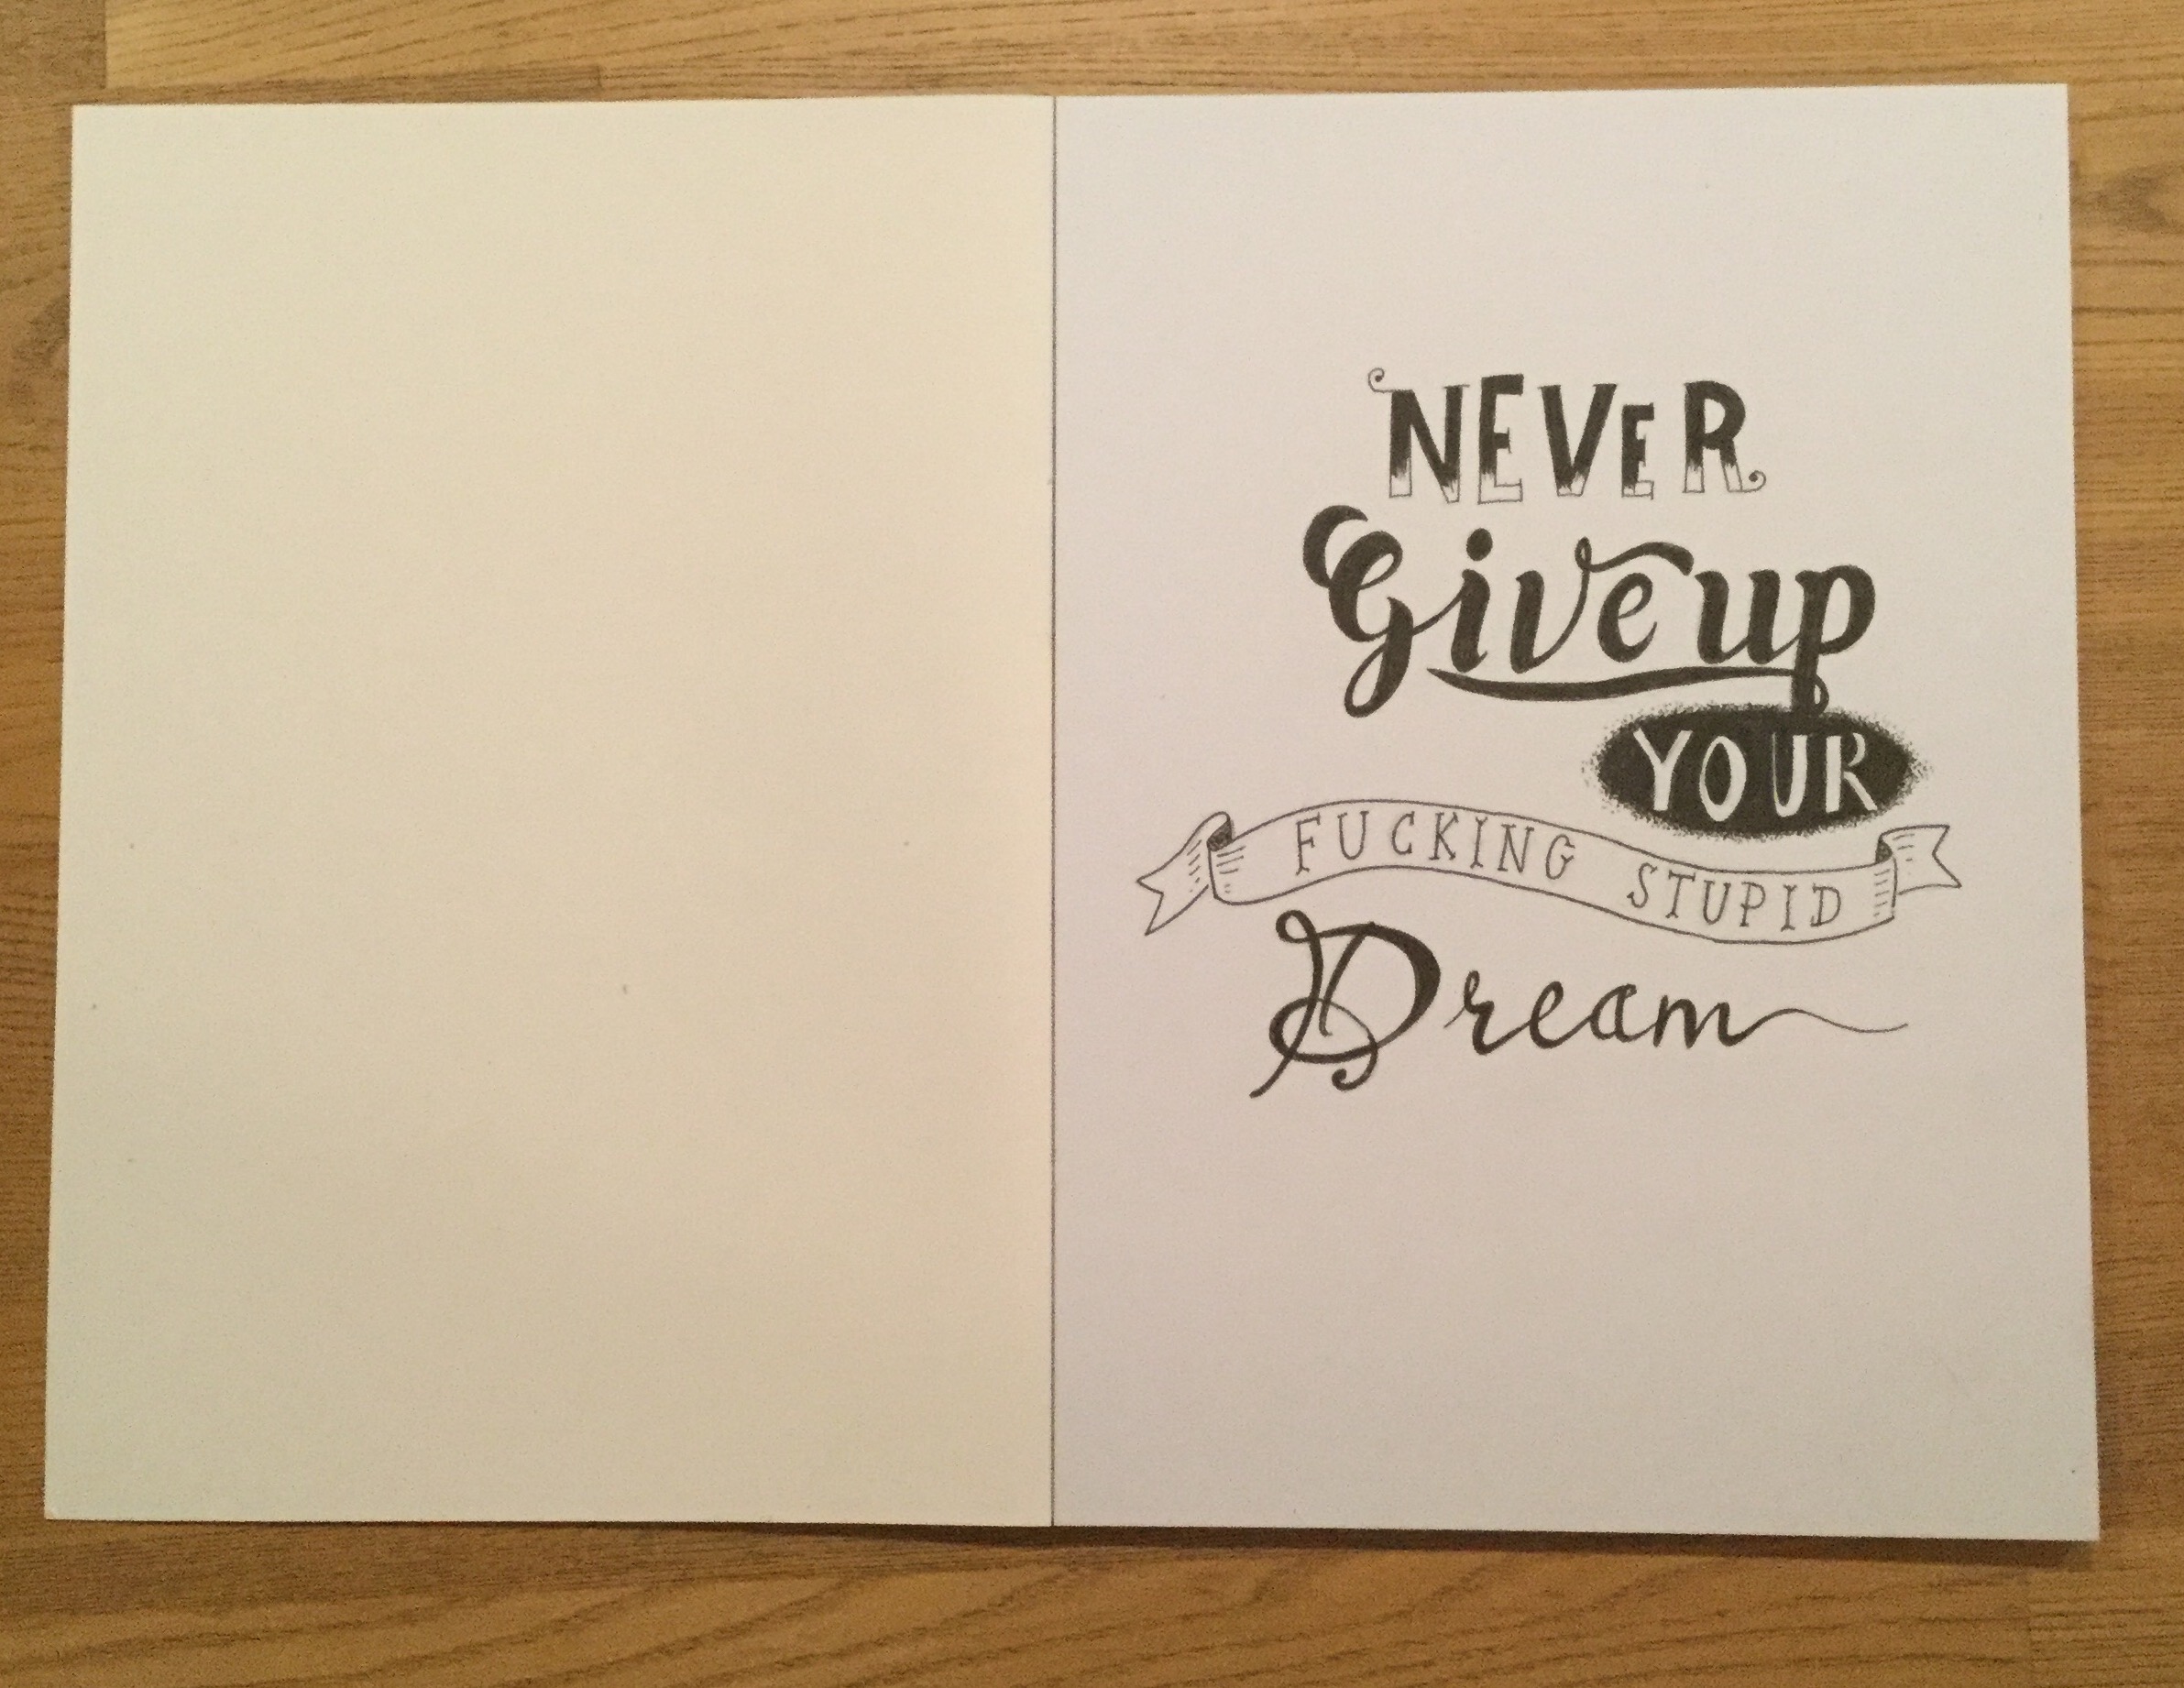 NEVER
Give up
YOUR
FUCKING STUPID
Dream